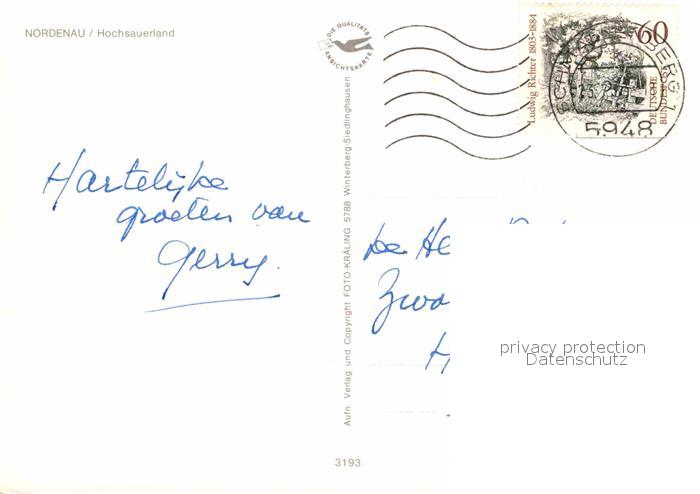 NORDENAU / Hochsauerland
DIE QUALITÄTS
ANSICHTSKARTE
Hartelijke
groeten van
Gerry.
Aufn. Verlag und Copyright FOTO-KRÄLING 5788 Winterberg-Siedlinghausen
3193
Ludwig Richter 1803-1884
60
DEUTSCHE
BUNDESPOST
SCHMALLENBERG 1
5948
De He
Zwa
H
privacy protection
Datenschutz